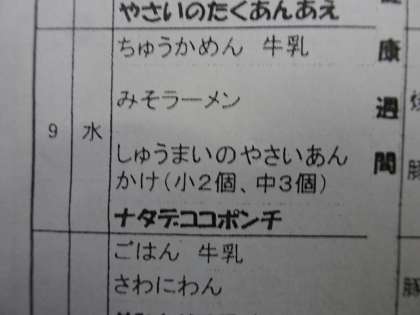 やさいのたくあんあえ
ちゅうかめん 牛乳
みそラーメン
9 水
しゅうまいのやさいあん
かけ(小2個、中3個)
ナタデココポンチ
ごはん 牛乳
さわにわん
康週間
豚
豚